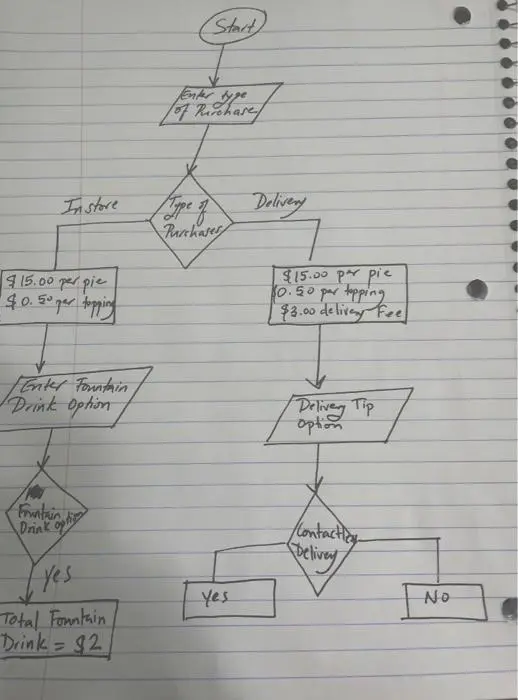 Start
Enter type
of Purchase
Type of
Purchases
Instore
Delivery
$15.00 per pie
$0.50 per topping
$15.00 per pie
$0.50 per topping
$3.00 delivery Fee
Enter Fountain
Drink Option
Delivery Tip
option
Fountain
Drink option
Contactless
Delivery
yes
Yes
NO
Total Fountain
Drink = $2